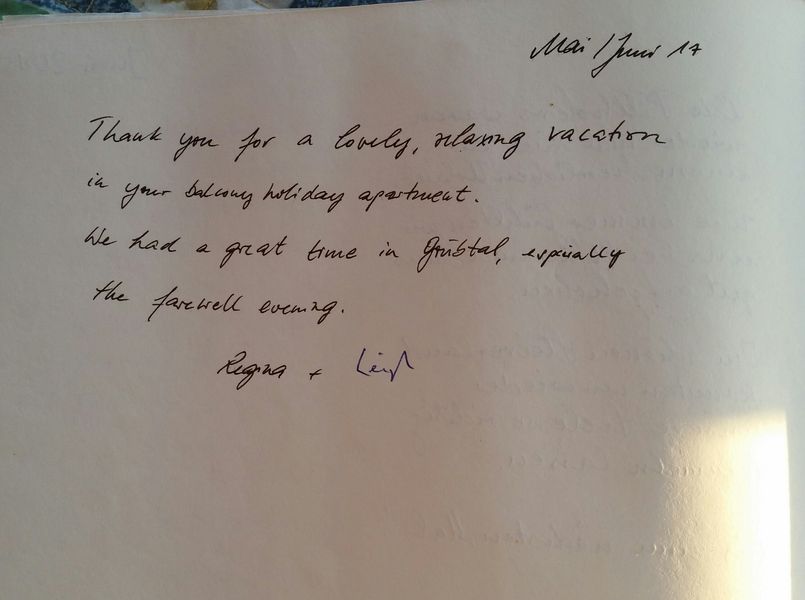 Mai / Juni 17
Thank you for a lovely, relaxing vacation
in your balcony holiday apartment.
We had a great time in Grübtal, especially
the farewell evening.
Regina + Leigh